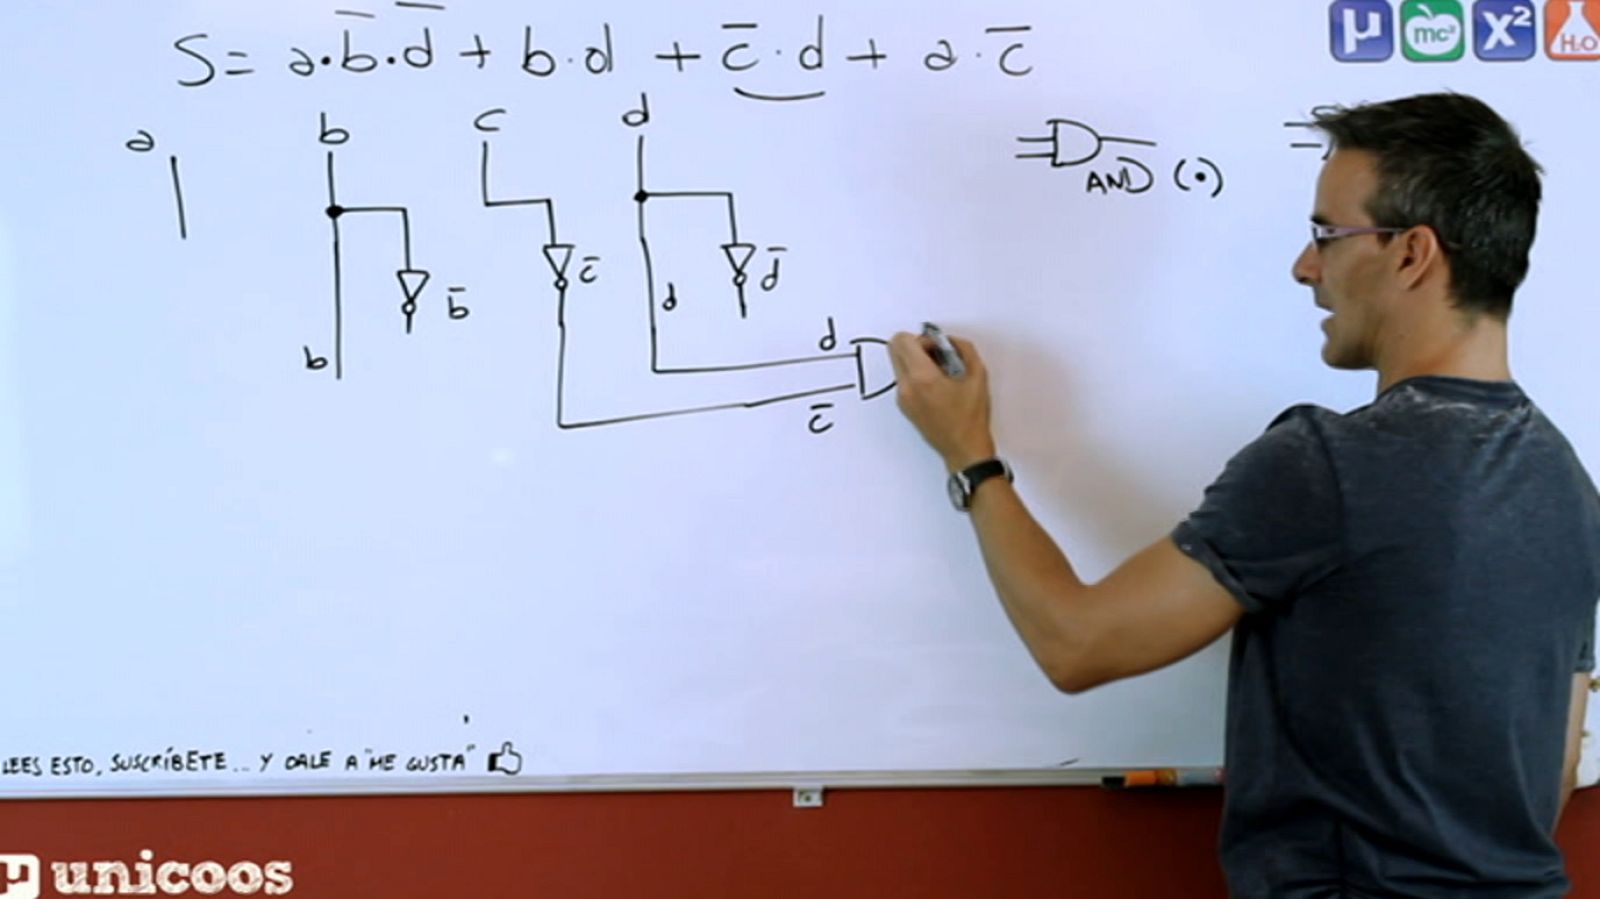 S = a·b̅·d̅ + b·d + c̅·d + a·c̅
μ mc² x² H₂O
a b c d
AND (·)
b̅ c̅ d d̅
b d
c̅
LEES ESTO, SUSCRÍBETE... Y DALE A "ME GUSTA"
μ unicoos